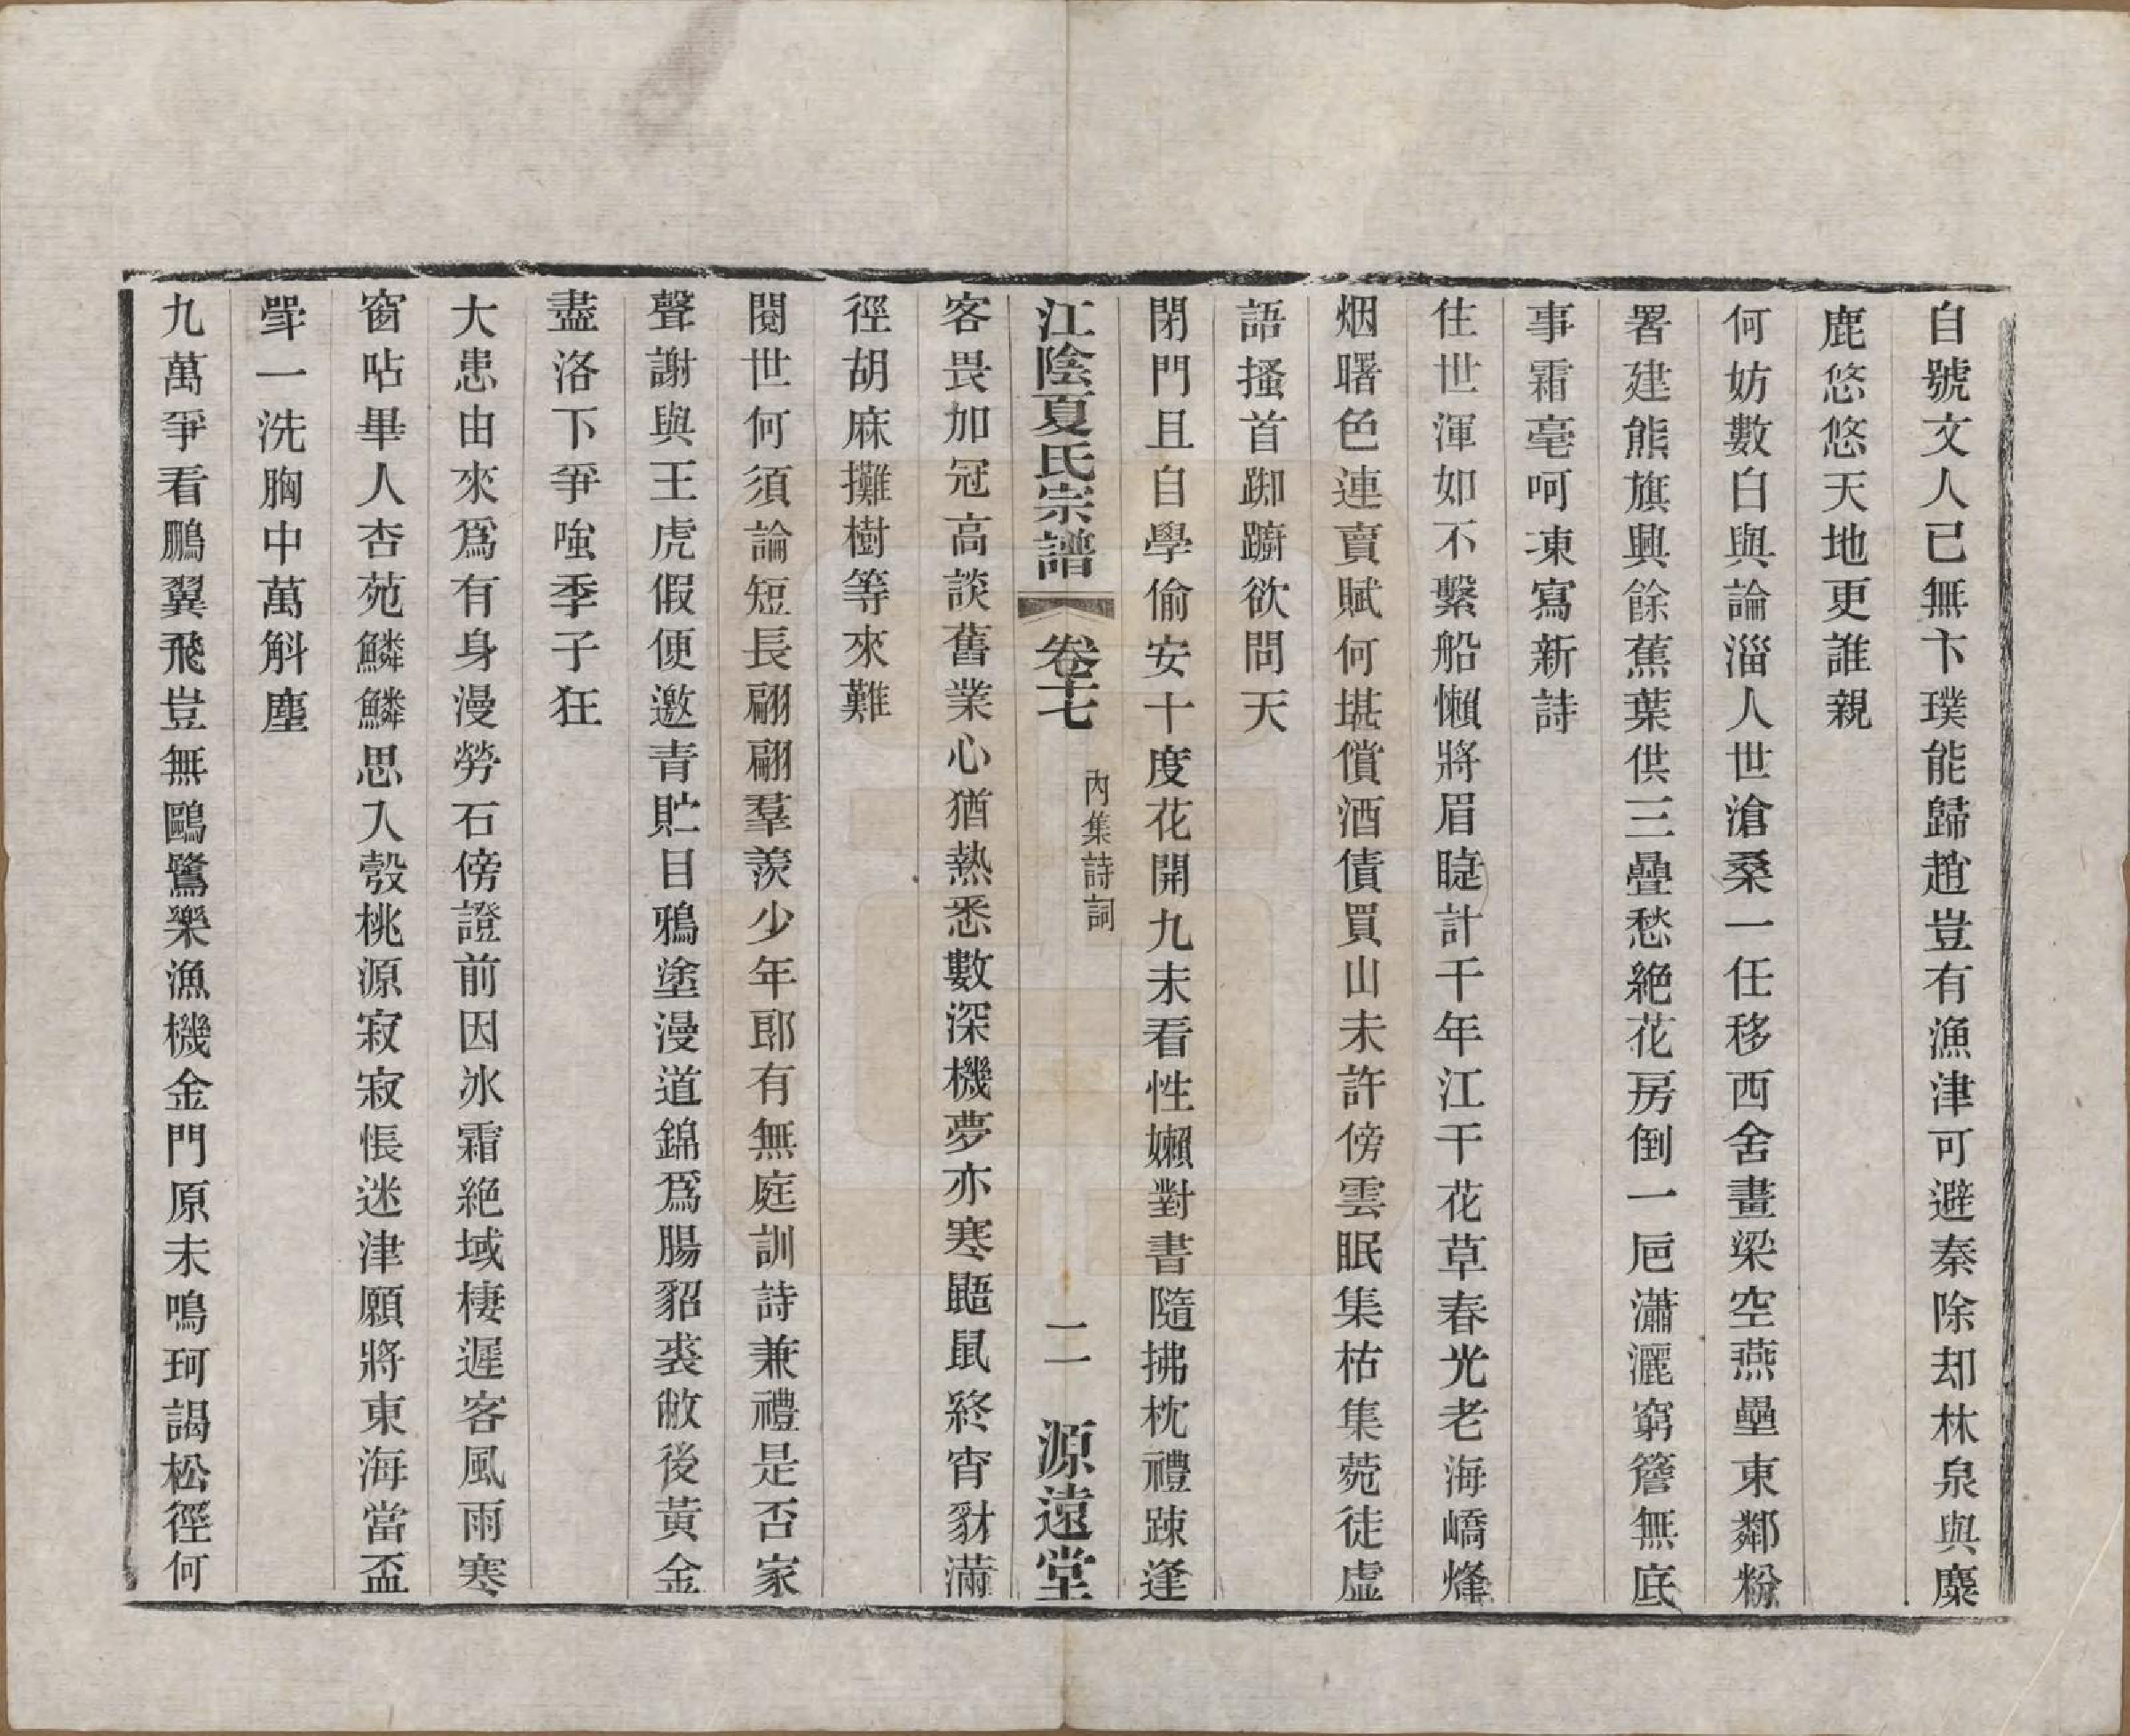 自號文人已無卞璞能歸趙豈有漁津可避秦除却林泉與麋
鹿悠悠天地更誰親
何妨數白與論淄人世滄桑一任移西舍畫梁空燕壘東鄰粉
署建熊旗興餘蕉葉供三疊愁絕花房倒一巵瀟灑窮簷無底
事霜毫呵凍寫新詩
住世渾如不繫船懶將眉睫計千年江干花草春光老海嶠烽
烟曙色連賣賦何堪償酒債買山未許傍雲眠集枯集菀徒虛
語搔首踟躕欲問天
閉門且自學偷安十度花開九未看性嬾對書隨拂枕禮踈逢
江陰夏氏宗譜 卷十七 內集詩詞 二 源遠堂
客畏加冠高談舊業心猶熱悉數深機夢亦寒鼯鼠終宵豺滿
徑胡麻攤樹等來難
閱世何須論短長翩翩羣羨少年郎有無庭訓詩兼禮是否家
聲謝與王虎假便邀青貯目鴉塗漫道錦爲腸貂裘敝後黃金
盡洛下爭嗤季子狂
大患由來爲有身漫勞石傍證前因冰霜絕域棲遲客風雨寒
窗呫畢人杏苑鱗鱗思入彀桃源寂寂悵迷津願將東海當盃
斝一洗胸中萬斛塵
九萬爭看鵬翼飛豈無鷗鷺樂漁機金門原未鳴珂謁松徑何